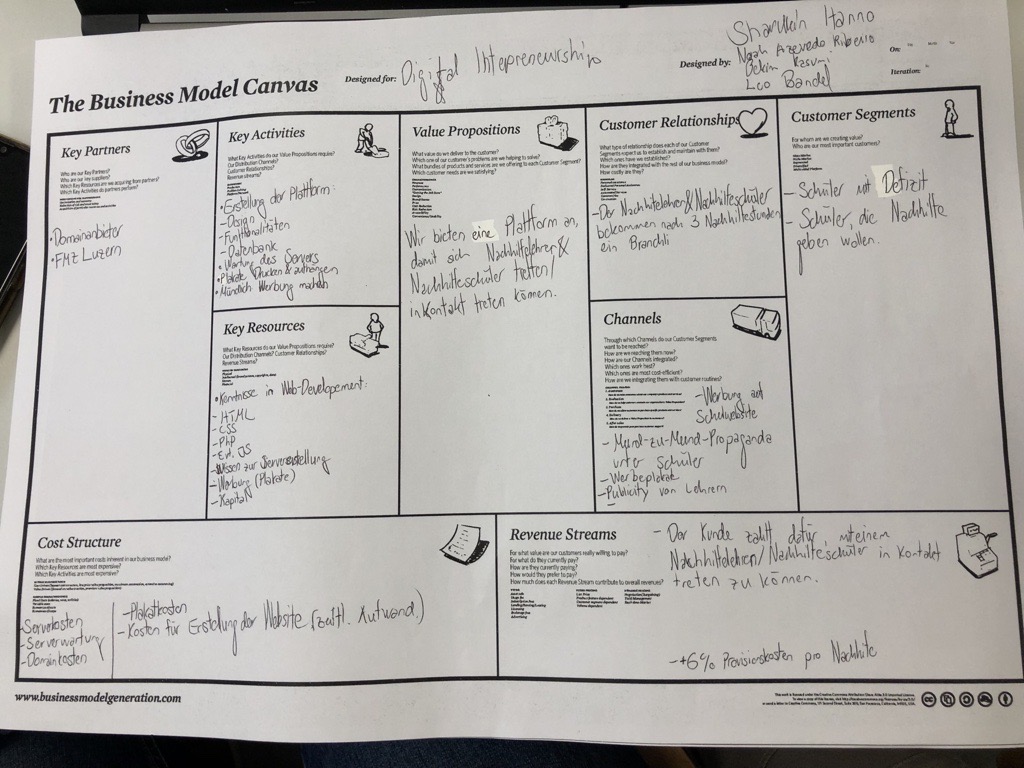 The Business Model Canvas
Designed for:
Digital Intepreneurship
Designed by:
Sharukin Hanno
Noah Azevedo Ribeiro
Dekim Kasumi
Leo Bandel
On:
Iteration:
Key Partners
Who are our Key Partners?
Who are our key suppliers?
Which Key Resources are we acquiring from partners?
Which Key Activities do partners perform?
• Domainanbieter
• FMZ Luzern
Key Activities
What Key Activities do our Value Propositions require?
Our Distribution Channels?
Customer Relationships?
Revenue streams?
• Erstellung der Plattform:
- Design
- Funktionalitäten
- Datenbank
• Wartung des Servers
• Plakate Drucken & aufhängen
• Mündlich Werbung machen
Key Resources
What Key Resources do our Value Propositions require?
Our Distribution Channels? Customer Relationships?
Revenue Streams?
• Kentnisse in Web-Developement:
- HTML
- CSS
- PhP
- Evt. JS
- Wissen zur Servererstellung
- Werbung (Plakate)
- Kapital
Value Propositions
What value do we deliver to the customer?
Which one of our customer's problems are we helping to solve?
What bundles of products and services are we offering to each Customer Segment?
Which customer needs are we satisfying?
Wir bieten eine Plattform an,
damit sich Nachhilfelehrer &
Nachhilfeschüler treffen/
in Kontakt treten können.
Customer Relationships
What type of relationship does each of our Customer
Segments expect us to establish and maintain with them?
Which ones have we established?
How are they integrated with the rest of our business model?
How costly are they?
- Der Nachhilfelehrer & Nachhilfeschüler
bekommen nach 3 Nachhilfestunden
ein Branchli
Channels
Through which Channels do our Customer Segments
want to be reached?
How are we reaching them now?
How are our Channels integrated?
Which ones work best?
Which ones are most cost-efficient?
How are we integrating them with customer routines?
- Werbung auf
Schulwebsite
- Mund-zu-Mund-Propaganda
unter Schüler
- Werbeplakate
- Publicity von Lehrern
Customer Segments
For whom are we creating value?
Who are our most important customers?
- Schüler mit Defizit
- Schüler, die Nachhilfe
geben wollen.
Cost Structure
What are the most important costs inherent in our business model?
Which Key Resources are most expensive?
Which Key Activities are most expensive?
- Serverkosten
- Serverwartung
- Domainkosten
- Plakatkosten
- Kosten für Erstellung der Website (zeitl. Aufwand.)
Revenue Streams
For what value are our customers really willing to pay?
For what do they currently pay?
How are they currently paying?
How would they prefer to pay?
How much does each Revenue Stream contribute to overall revenues?
- Der Kunde zahlt dafür, mit einem
Nachhilfelehrer/Nachhilfeschüler in Kontakt
treten zu können.
- +6% Provisionskosten pro Nachhilfe
www.businessmodelgeneration.com